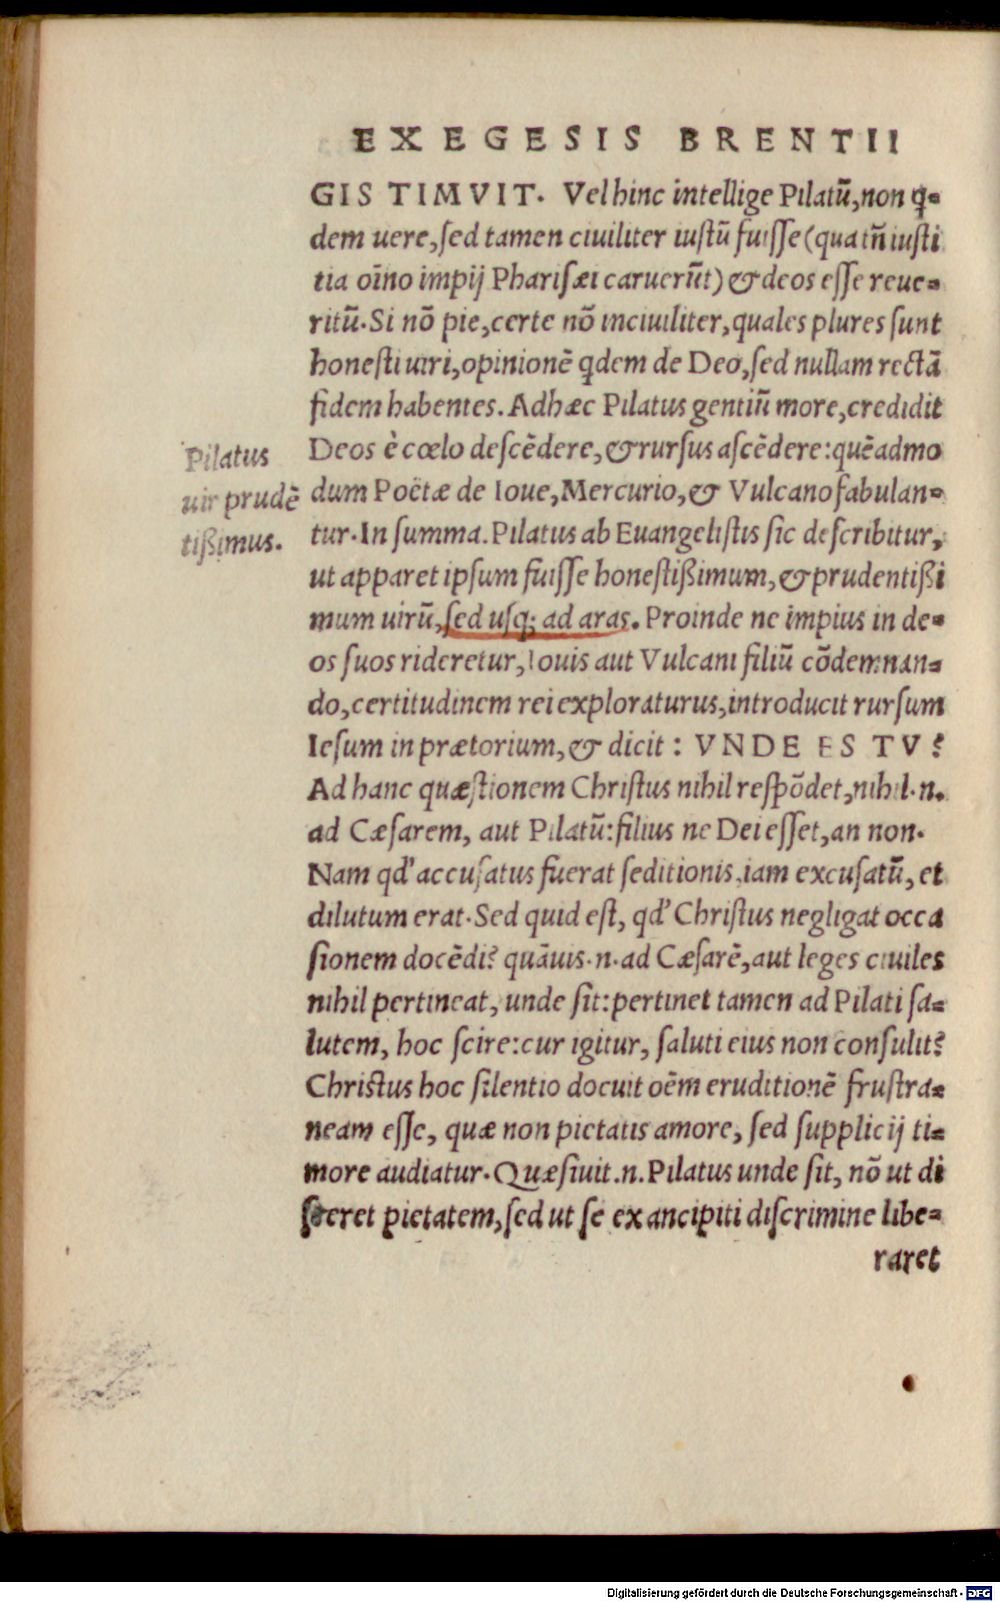 EXEGESIS BRENTII
GIS TIMVIT. Vel hinc intellige Pilatū, non q̃-
dem uere, ſed tamen ciuiliter iuſtū fuiſſe (qua tñ iuſti
tia oīno impij Phariſæi caruerūt) & deos eſſe reue-
ritū. Si nō pie, certe nō inciuiliter, quales plures ſunt
honeſti uiri, opinionē q̃dem de Deo, ſed nullam rectā
fidem habentes. Adhæc Pilatus gentiū more, credidit
Deos è cœlo deſcēdere, & rurſus aſcēdere: quēadmo
dum Poëtæ de Ioue, Mercurio, & Vulcano fabulan-
tur. In ſumma. Pilatus ab Euangeliſtis ſic deſcribitur,
ut appareat ipſum fuiſſe honeſtißimum, & prudentißi
mum uirū, ſed uſq; ad aras. Proinde ne impius in de-
os ſuos rideretur, Iouis aut Vulcani filiū cōdemnan-
do, certitudinem rei exploraturus, introducit rurſum
Ieſum in prætorium, & dicit: VNDE ES TV?
Ad hanc quæſtionem Chriſtus nihil reſpōdet, nihil .n.
ad Cæſarem, aut Pilatū: filius ne Dei eſſet, an non.
Nam qd' accuſatus fuerat ſeditionis, iam excuſatū, et
dilutum erat. Sed quid eſt, qd' Chriſtus negligat occa
ſionem docēdi? quāuis .n. ad Cæſarē, aut leges ciuiles
nihil pertineat, unde ſit: pertinet tamen ad Pilati ſa-
lutem, hoc ſcire: cur igitur, ſaluti eius non conſulit?
Chriſtus hoc ſilentio docuit oēm eruditionē fruſtra-
neam eſſe, quæ non pietatis amore, ſed ſupplicij ti-
more audiatur. Quæſiuit .n. Pilatus unde ſit, nō ut di
ſceret pietatem, ſed ut ſe ex ancipiti diſcrimine libe-
raret
Pilatus
uir prudē
tißimus.
Digitalisierung gefördert durch die Deutsche Forschungsgemeinschaft - DFG